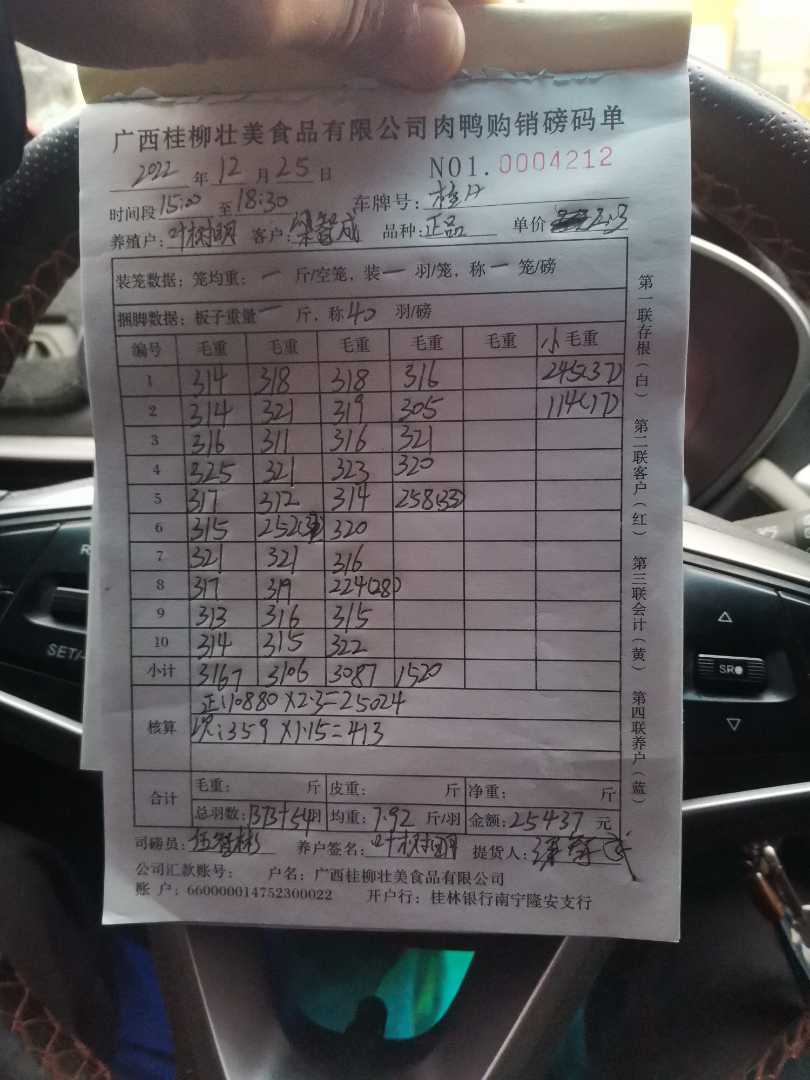 广西桂柳壮美食品有限公司肉鸭购销磅码单
2022 年 12 月 25 日 NO1.0004212
时间段 15:00 至 18:30 车牌号: 桂
养殖户: 叶树明 客户: 梁智成 品种: 正品 单价 2.3
装笼数据: 笼均重: 一 斤/空笼, 装 一 羽/笼, 称 一 笼/磅
捆脚数据: 板子重量 一 斤, 称 40 羽/磅
编号 毛重 毛重 毛重 毛重 毛重 小毛重
1 314 318 318 316 245(37)
2 314 321 319 305 114(17)
3 316 311 316 321
4 325 321 323 320
5 317 312 314 258(33)
6 315 252 320
7 321 321 316
8 317 319 224(28)
9 313 316 315
10 314 315 322
小计 3167 3106 3087 1520
核算 正:10880×2.3=25024
次:359×1.15=413
合计 毛重: 斤 皮重: 斤 净重: 斤
总羽数: 1373+54羽 均重: 7.92 斤/羽 金额: 25437 元
司磅员: 伍智彬 养户签名: 叶树明 提货人:
公司汇款账号: 户名: 广西桂柳壮美食品有限公司
账 户: 660000014752300022 开户行: 桂林银行南宁隆安支行
第一联存根(白) 第二联客户(红) 第三联会计(黄) 第四联养户(蓝)
SET/
SR